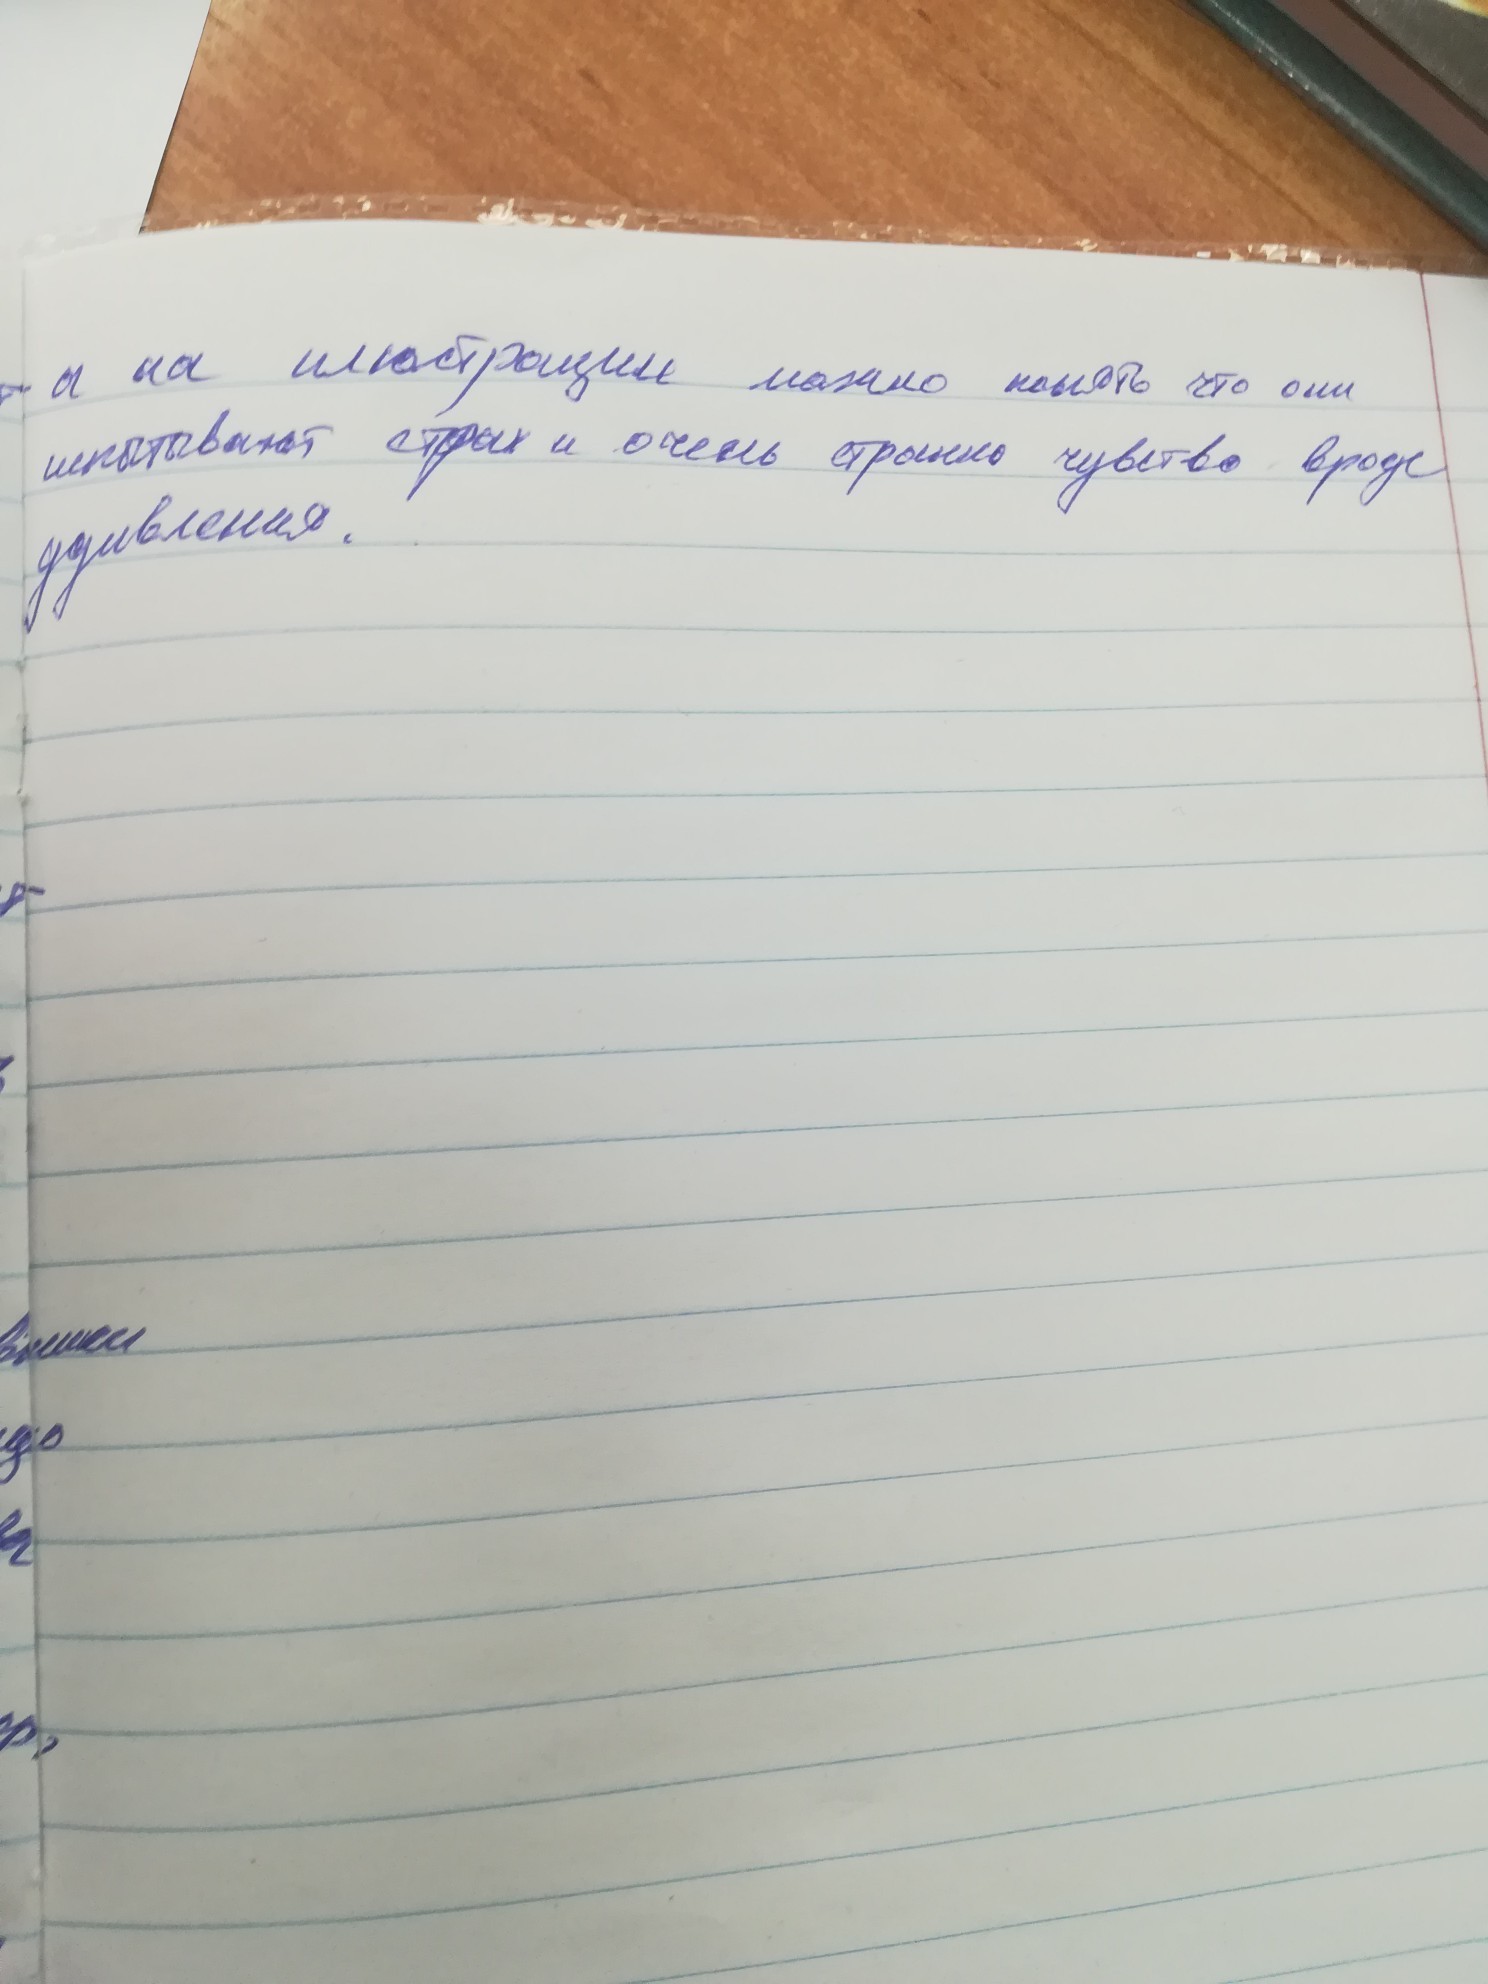 а на илюстрации можно понять что они
испытывают страх и очень странно чувство вроде
удивления.